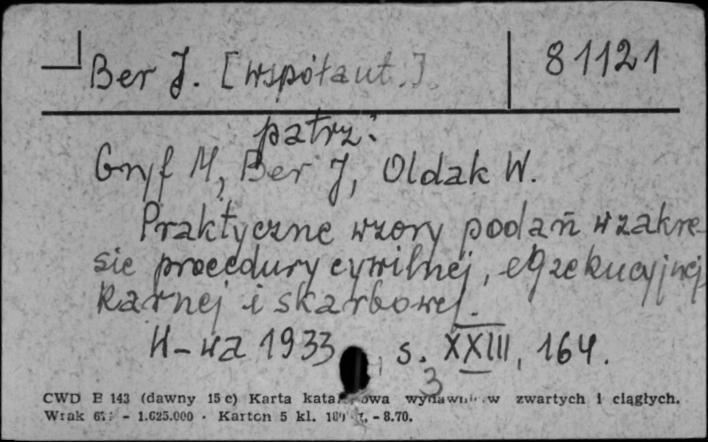 Ber J. [współaut.] 81121
patrz:
Gryf M, Ber J, Oldak W.
Praktyczne wzory podań w zakre-
sie procedury cywilnej, egzekucyjnej
karnej i skarbowej.
W-wa 1933 s. XXIII, 164.
3
CWD E 143 (dawny 15 c) Karta wydawnictw zwartych i ciągłych.
Wrak - 1.625.000 - Karton 5 kl. - 8.70.